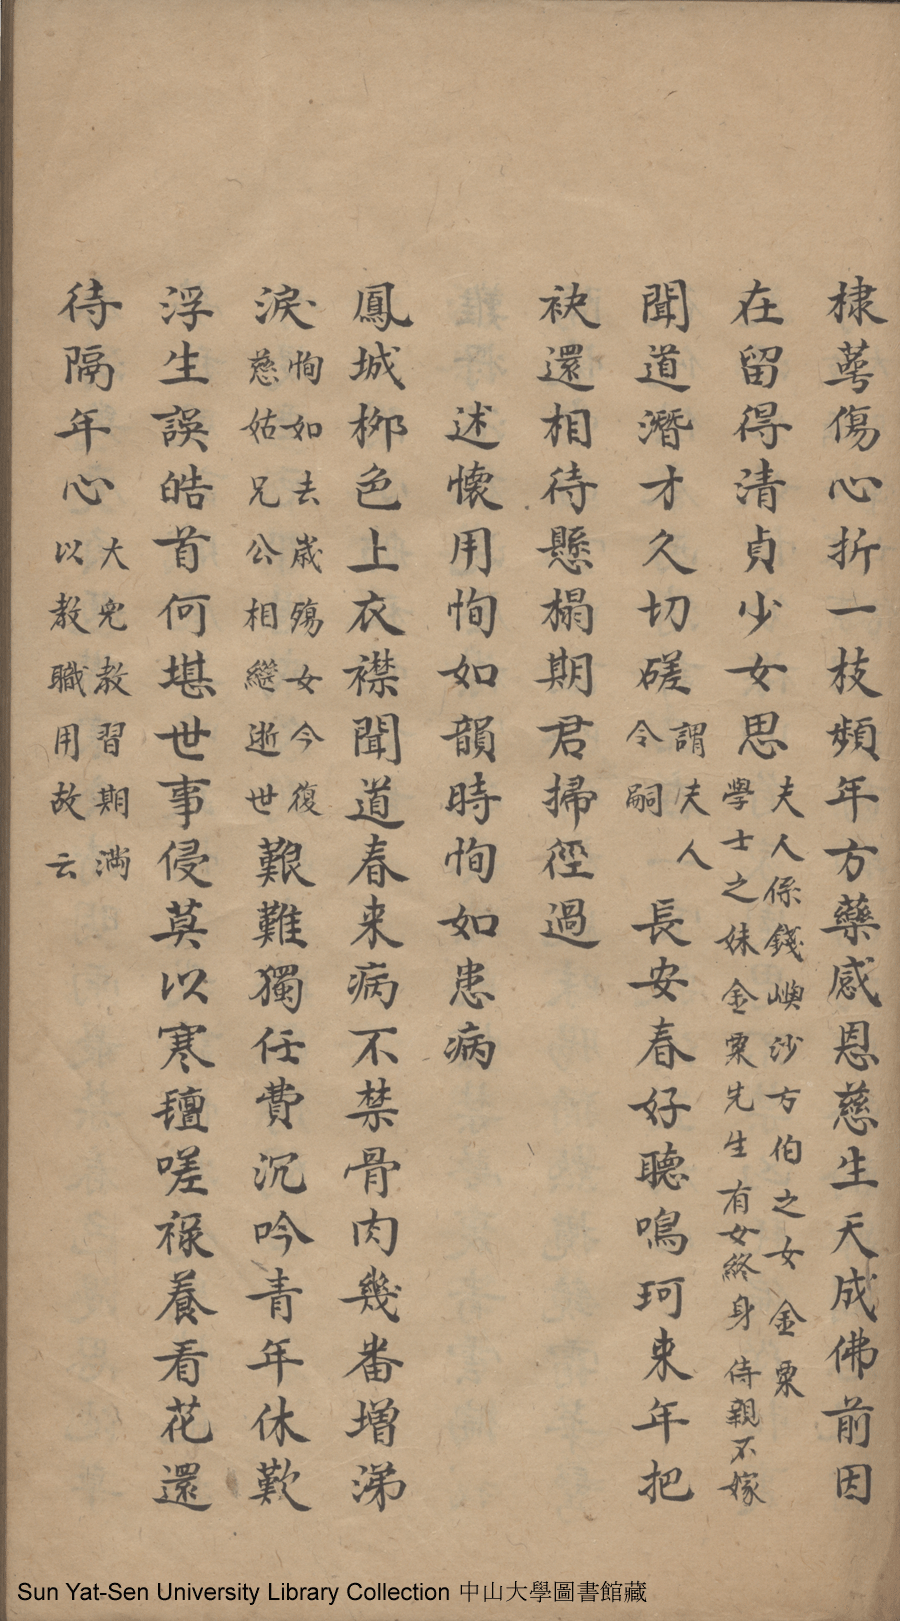 棣萼傷心折一枝頻年方藥感恩慈生天成佛前因
在留得清貞少女思夫人係錢嶼沙方伯之女金粟學士之妹金粟先生有女終身侍親不嫁
聞道潛才久切磋謂夫人令嗣長安春好聽鳴珂来年把
袂還相待懸榻期君掃徑過
述懷用恂如韻時恂如患病
鳳城栁色上衣襟聞道春来病不禁骨肉幾番增涕
淚恂如去歳殤女今復慈姑兄公相繼逝世艱難獨任費沉吟青年休歎
浮生誤皓首何堪世事侵莫以寒氊嗟祿養看花還
待隔年心大兒教習期満以教職用故云
Sun Yat-Sen University Library Collection 中山大學圖書館藏